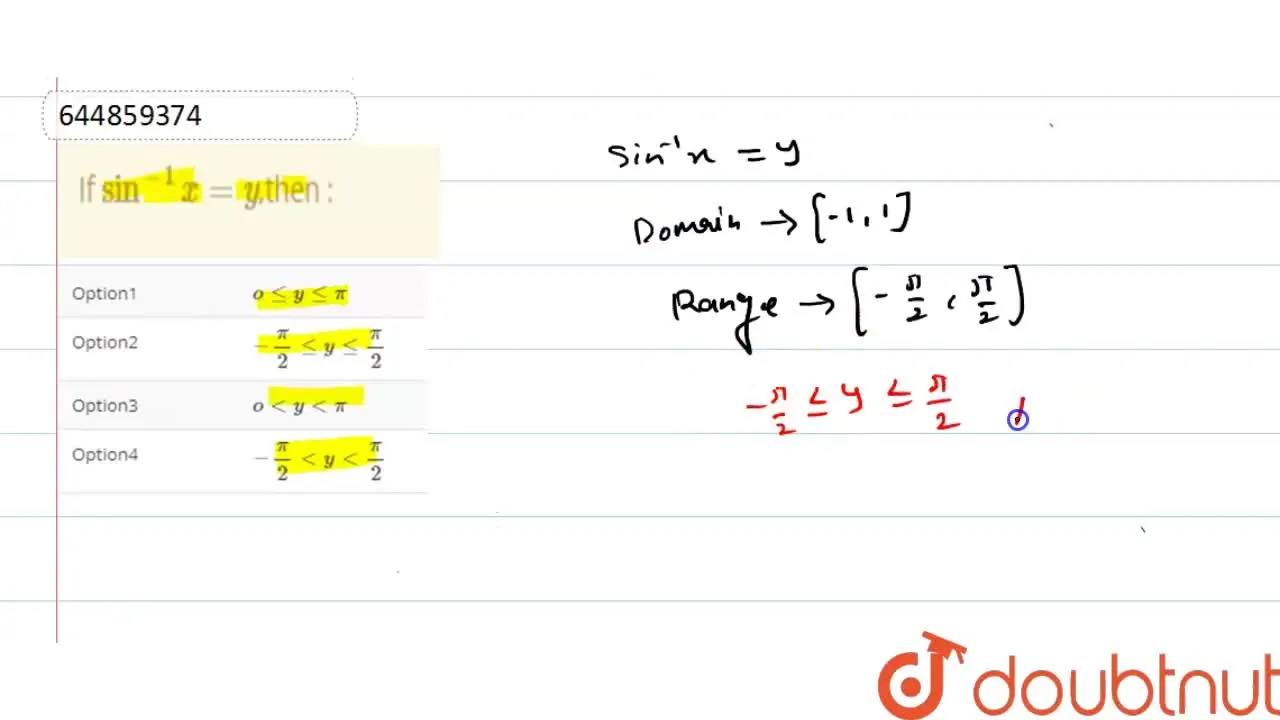 644859374
If sin⁻¹ x = y,then :
Option1 o ≤ y ≤ π
Option2 −π/2 ≤ y ≤ π/2
Option3 o < y < π
Option4 −π/2 < y < π/2
sin⁻¹x = y
Domain → [-1, 1]
Range → [-π/2, π/2]
-π/2 ≤ y ≤ π/2
doubtnut